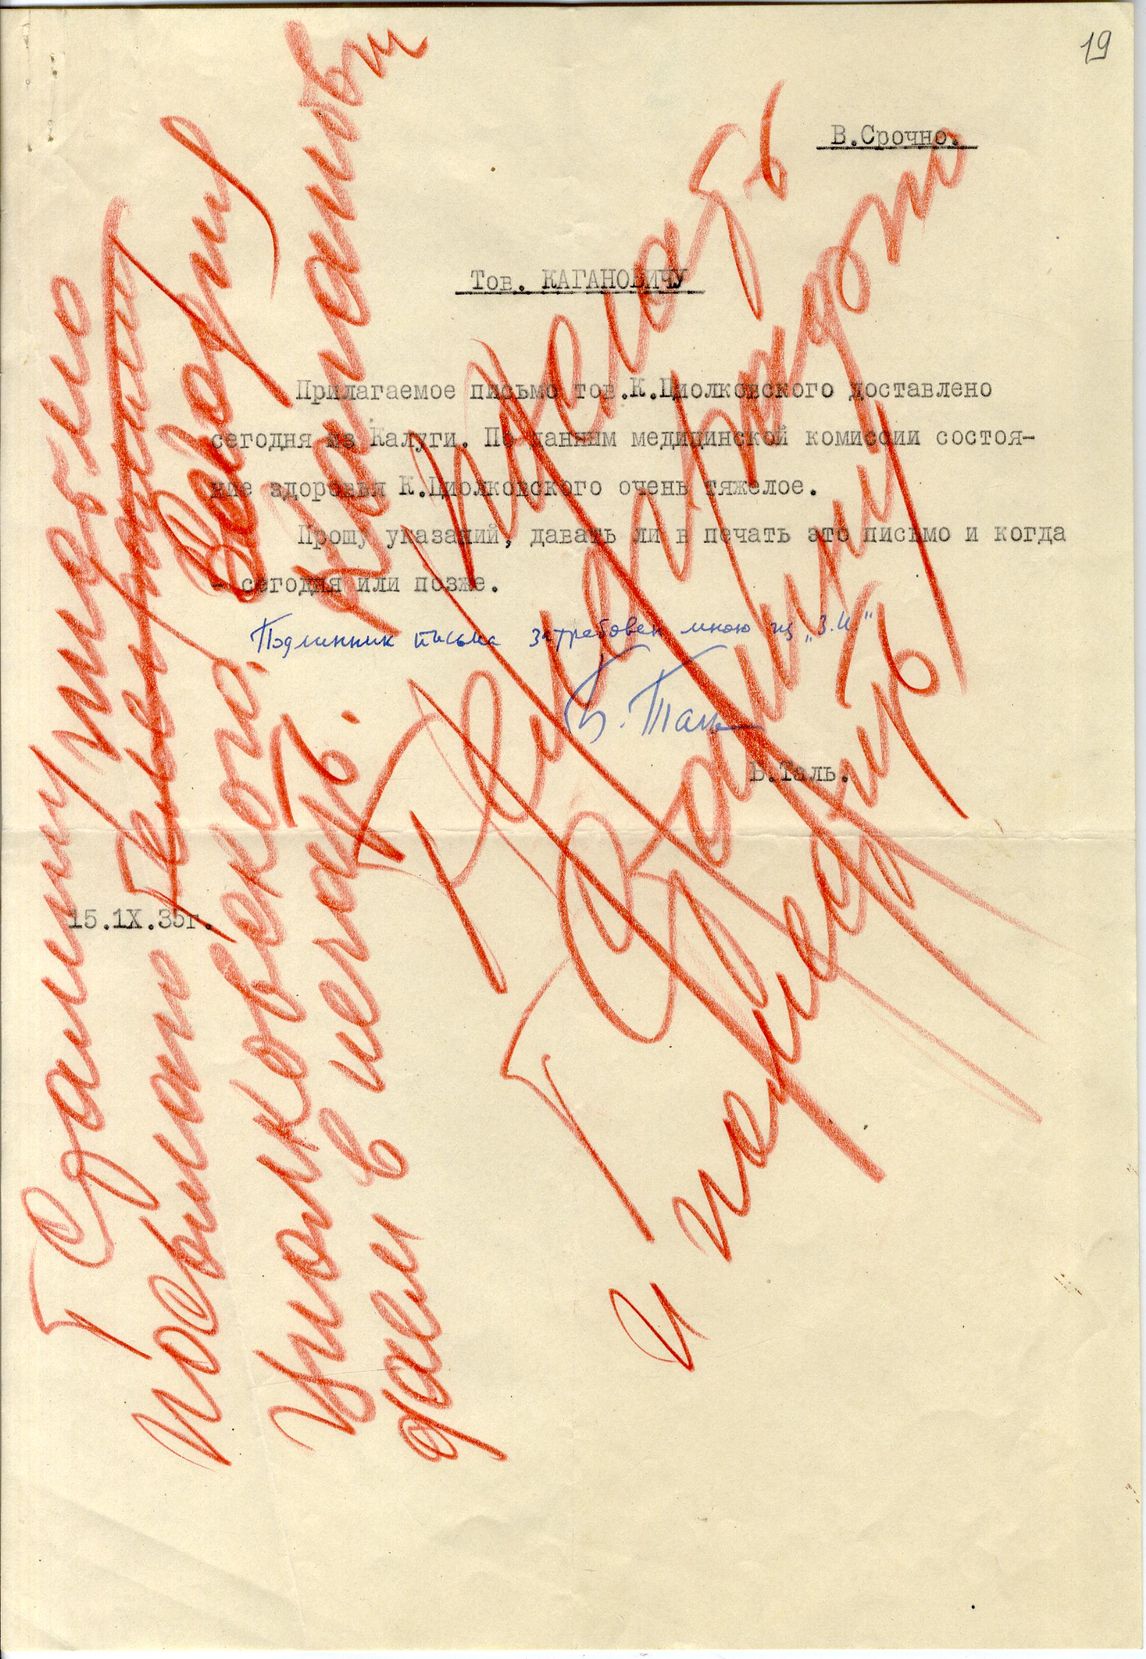 19
В.Срочно.
Тов. КАГАНОВИЧУ
Прилагаемое письмо тов.К.Циолковского доставлено
сегодня из Калуги. По данным медицинской комиссии состоя-
ние здоровья К.Циолковского очень тяжелое.
Прошу указаний, давать ли в печать это письмо и когда
- сегодня или позже.
Подлинник письма затребован мною из „З.И"
Б. Таль
Б.Таль.
15.1X.35г.
Т Сталину письмо
посылаю
Циолковского.
даем в печать.
Каганович
Т
Сталину
и передать